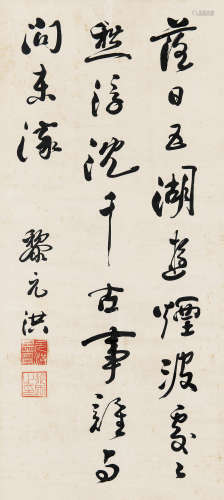 落日五湖遊煙波處〻
愁浮沈千古事誰與
問東流
黎元洪